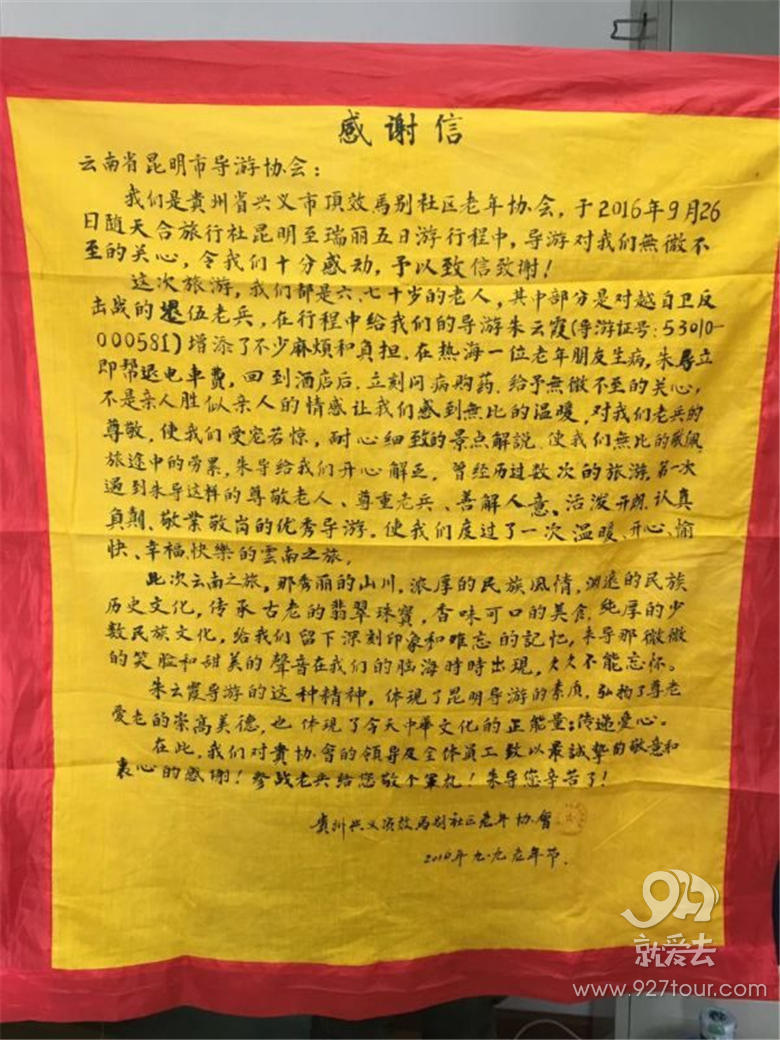 感谢信
云南省昆明市导游协会：
我们是貴州省兴义市頂效馬别社区老年协会，于2016年9月26
日随天合旅行社昆明至瑞丽五日游行程中，导游对我们無微不
至的关心，令我们十分感动，予以致信致谢！
这次旅游，我们都是六、七十岁的老人，其中部分是对越自卫反
击战的退伍老兵，在行程中给我们的导游朱云霞(导游证号:53010-
000581)增添了不少麻煩和负担，在热海一位老年朋友生病，朱导立
即帮退电車费，回到酒店后，立刻问病购药，给予無微不至的关心，
不是亲人胜似亲人的情感让我们感到無比的温暖，对我们老兵的
尊敬，使我们受宠若惊，耐心细致的景点解説，使我们無比的敬佩，
旅途中的劳累，朱导给我们开心解乏，曾经历过数次的旅游，第一次
遇到朱导这样的尊敬老人、尊重老兵、善解人意、活泼开朗、认真
负责、敬業敬岗的优秀导游，使我们度过了一次温暖、开心、愉
快、幸福、快樂的雲南之旅。
此次云南之旅，那秀丽的山川，浓厚的民族風情，渊遠的民族
历史文化，传承古老的翡翠珠寶，香味可口的美食，純厚的少
数民族文化，给我们留下深刻印象和难忘的記忆，朱导那微微
的笑脸和甜美的聲音在我们的脑海時時出現，久久不能忘怀。
朱云霞导游的这种精神，体現了昆明导游的素质，弘扬了尊老
爱老的崇高美德，也体現了今天中華文化的正能量：传递爱心。
在此，我们对貴协會的領导及全体員工致以最誠挚的敬意和
衷心的感谢！参战老兵给您敬个軍礼！朱导您辛苦了！
貴州兴义頂效馬别社区老年协會
2016年九.九老年节.
927
就爱去
www.927tour.com